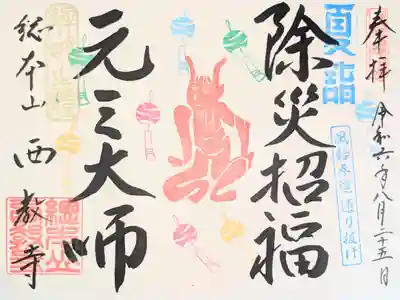 奉拝 令和六年八月二十五日
夏詣
風鈴参道通り抜け
除災招福
元三大師
総本山 西教寺